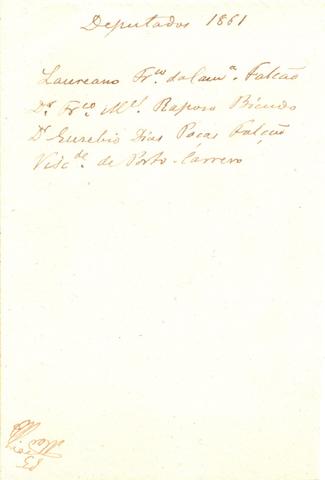 Deputados 1861
Laureano Fr.co da Cam.a Falcão
Dr Fr.co M.el Raposo Bicudo
Dr Euzebio Dias Poças Falcão
Visc.de de Porto-Carrero